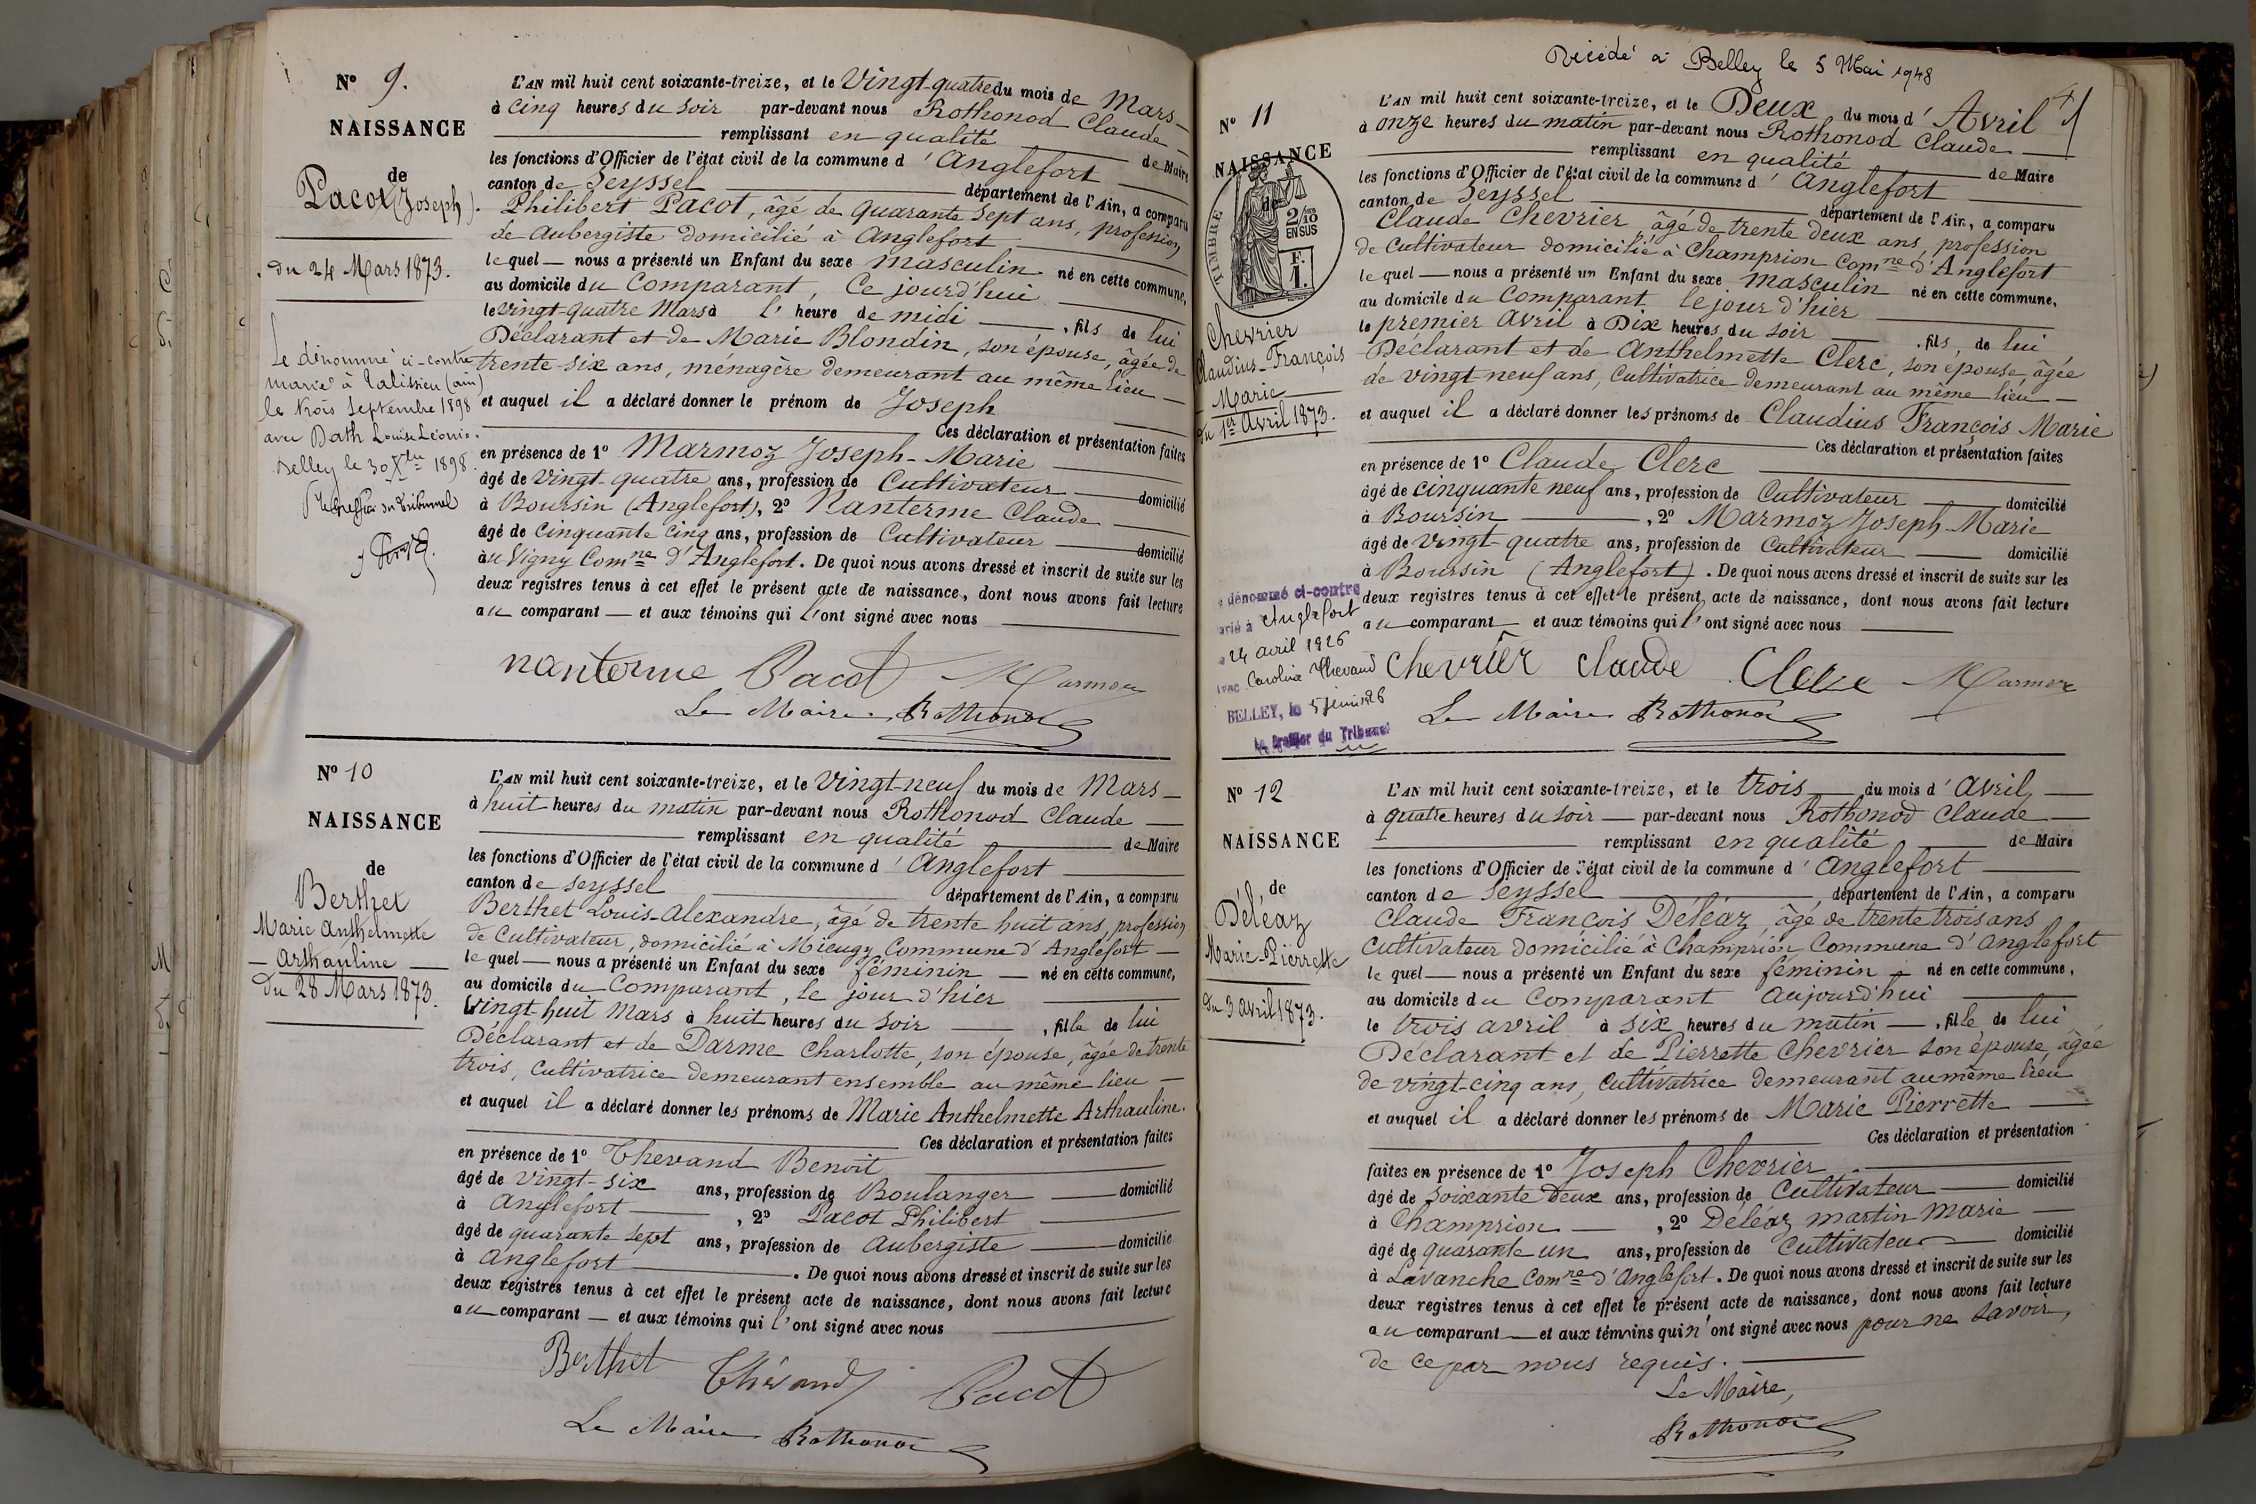 N° 9.
NAISSANCE
de
Pacot (Joseph).
du 24 Mars 1873.
Le dénommé ci-contre
marié à Talissieu (ain)
le trois Septembre 1898
avec Dath Louise Léonie.
Belley le 30 Xbre 1898.
Le greffier du Tribunal
L'AN mil huit cent soixante-treize, et le Vingt-quatre du mois de Mars
à cinq heures du soir par-devant nous Rothonod Claude
remplissant en qualité de Maire
les fonctions d'Officier de l'état civil de la commune d'Anglefort
canton de Seyssel département de l'Ain, a comparu
Philibert Pacot, âgé de quarante sept ans, profession
de Aubergiste domicilié à Anglefort
lequel — nous a présenté un Enfant du sexe masculin né en cette commune,
au domicile du Comparant, Ce jourd'hui
le vingt-quatre Mars à l'heure de midi — , fils de lui
Déclarant et de Marie Blondin, son épouse, âgée de
trente-six ans, ménagère demeurant au même lieu —
et auquel il a déclaré donner le prénom de Joseph
Ces déclaration et présentation faites
en présence de 1° Marmoz Joseph-Marie
âgé de Vingt-quatre ans, profession de Cultivateur — domicilié
à Boursin (Anglefort), 2° Nanterme Claude
âgé de Cinquante cinq ans, profession de Cultivateur — domicilié
à u Vigny Comne d'Anglefort. De quoi nous avons dressé et inscrit de suite sur les
deux registres tenus à cet effet le présent acte de naissance, dont nous avons fait lecture
au comparant — et aux témoins qui l'ont signé avec nous
nanterme Pacot Marmoz
Le Maire, Rothonod
N° 10
NAISSANCE
de
Berthet
Marie Anthelmette
— Arthauline —
Du 28 Mars 1873.
L'AN mil huit cent soixante-treize, et le Vingt-neuf du mois de Mars —
à huit heures du matin par-devant nous Rothonod Claude —
remplissant en qualité de Maire
les fonctions d'Officier de l'état civil de la commune d'Anglefort
canton de Seyssel département de l'Ain, a comparu
Berthet Louis-Alexandre, âgé de trente huit ans, profession
de Cultivateur, domicilié à Mieugy Commune d'Anglefort —
lequel — nous a présenté un Enfant du sexe féminin — né en cette commune,
au domicile du Comparant, le jour d'hier
Vingt-huit Mars à huit heures du soir — , fille de lui
Déclarant et de Darme Charlotte, son épouse, âgée de trente
trois, Cultivatrice demeurant ensemble au même lieu —
et auquel il a déclaré donner les prénoms de Marie Anthelmette Arthauline.
Ces déclaration et présentation faites
en présence de 1° Thevand Benoit
âgé de vingt-six ans, profession de Boulanger — domicilié
à Anglefort — , 2° Pacot Philibert
âgé de quarante sept ans, profession de Aubergiste — domicilié
à Anglefort — . De quoi nous avons dressé et inscrit de suite sur les
deux registres tenus à cet effet le présent acte de naissance, dont nous avons fait lecture
au comparant — et aux témoins qui l'ont signé avec nous
Berthet Thévand Pacot
Le Maire Rothonod
Décédé à Belley le 5 Mai 1948
N° 11
NAISSANCE
de
TIMBRE
2/10
EN SUS
F.
1.
Chevrier
Claudius-François
Marie
du 1er Avril 1873.
Le dénommé ci-contre
marié à Anglefort
24 avril 1926
avec Carolina Thevand
BELLEY, le 5 juin 1926
Le Greffier du Tribunal
L'AN mil huit cent soixante-treize, et le Deux du mois d'Avril
à onze heures du matin par-devant nous Rothonod Claude —
remplissant en qualité de Maire
les fonctions d'Officier de l'état civil de la commune d'Anglefort
canton de Seyssel département de l'Ain, a comparu
Claude Chevrier âgé de trente deux ans, profession
de Cultivateur domicilié à Champrion Comne d'Anglefort
lequel — nous a présenté un Enfant du sexe Masculin né en cette commune,
au domicile du Comparant le jour d'hier
le premier Avril à Dix heures du soir , fils de lui
Déclarant et de Anthelmette Clerc, son épouse, âgée
de vingt-neuf ans, Cultivatrice demeurant au même lieu —
et auquel il a déclaré donner les prénoms de Claudius François Marie
Ces déclaration et présentation faites
en présence de 1° Claude Clerc
âgé de cinquante neuf ans, profession de Cultivateur — domicilié
à Boursin — , 2° Marmoz Joseph-Marie
âgé de Vingt-quatre ans, profession de Cultivateur — domicilié
à Boursin (Anglefort). De quoi nous avons dressé et inscrit de suite sur les
deux registres tenus à cet effet le présent acte de naissance, dont nous avons fait lecture
au comparant — et aux témoins qui l'ont signé avec nous
Chevrier claude Clerc Marmoz
Le Maire Rothonod
N° 12
NAISSANCE
de
Déléaz
Marie-Pierrette
du 3 avril 1873.
L'AN mil huit cent soixante-treize, et le trois — du mois d'avril —
à quatre heures du soir — par-devant nous Rothonod Claude —
remplissant en qualité de Maire
les fonctions d'Officier de l'état civil de la commune d'Anglefort
canton de Seyssel département de l'Ain, a comparu
Claude François Déléaz, âgé de trente trois ans
Cultivateur domicilié à Champrion Commune d'Anglefort
lequel — nous a présenté un Enfant du sexe féminin — né en cette commune,
au domicile du Comparant Aujourd'hui
le trois avril à six heures du matin — , fille de lui
Déclarant et de Pierrette Chevrier son épouse, âgée
de vingt-cinq ans, Cultivatrice demeurant au même lieu
et auquel il a déclaré donner les prénoms de Marie Pierrette —
Ces déclaration et présentation
faites en présence de 1° Joseph Chevrier
âgé de soixante deux ans, profession de Cultivateur — domicilié
à Champrion — , 2° Déléaz martin marie —
âgé de quarante un ans, profession de Cultivateur domicilié
à Lavanche Comne d'Anglefort. De quoi nous avons dressé et inscrit de suite sur les
deux registres tenus à cet effet le présent acte de naissance, dont nous avons fait lecture
au comparant — et aux témoins qui n'ont signé avec nous pour ne savoir,
de ce par nous requis. —
Le Maire,
Rothonod